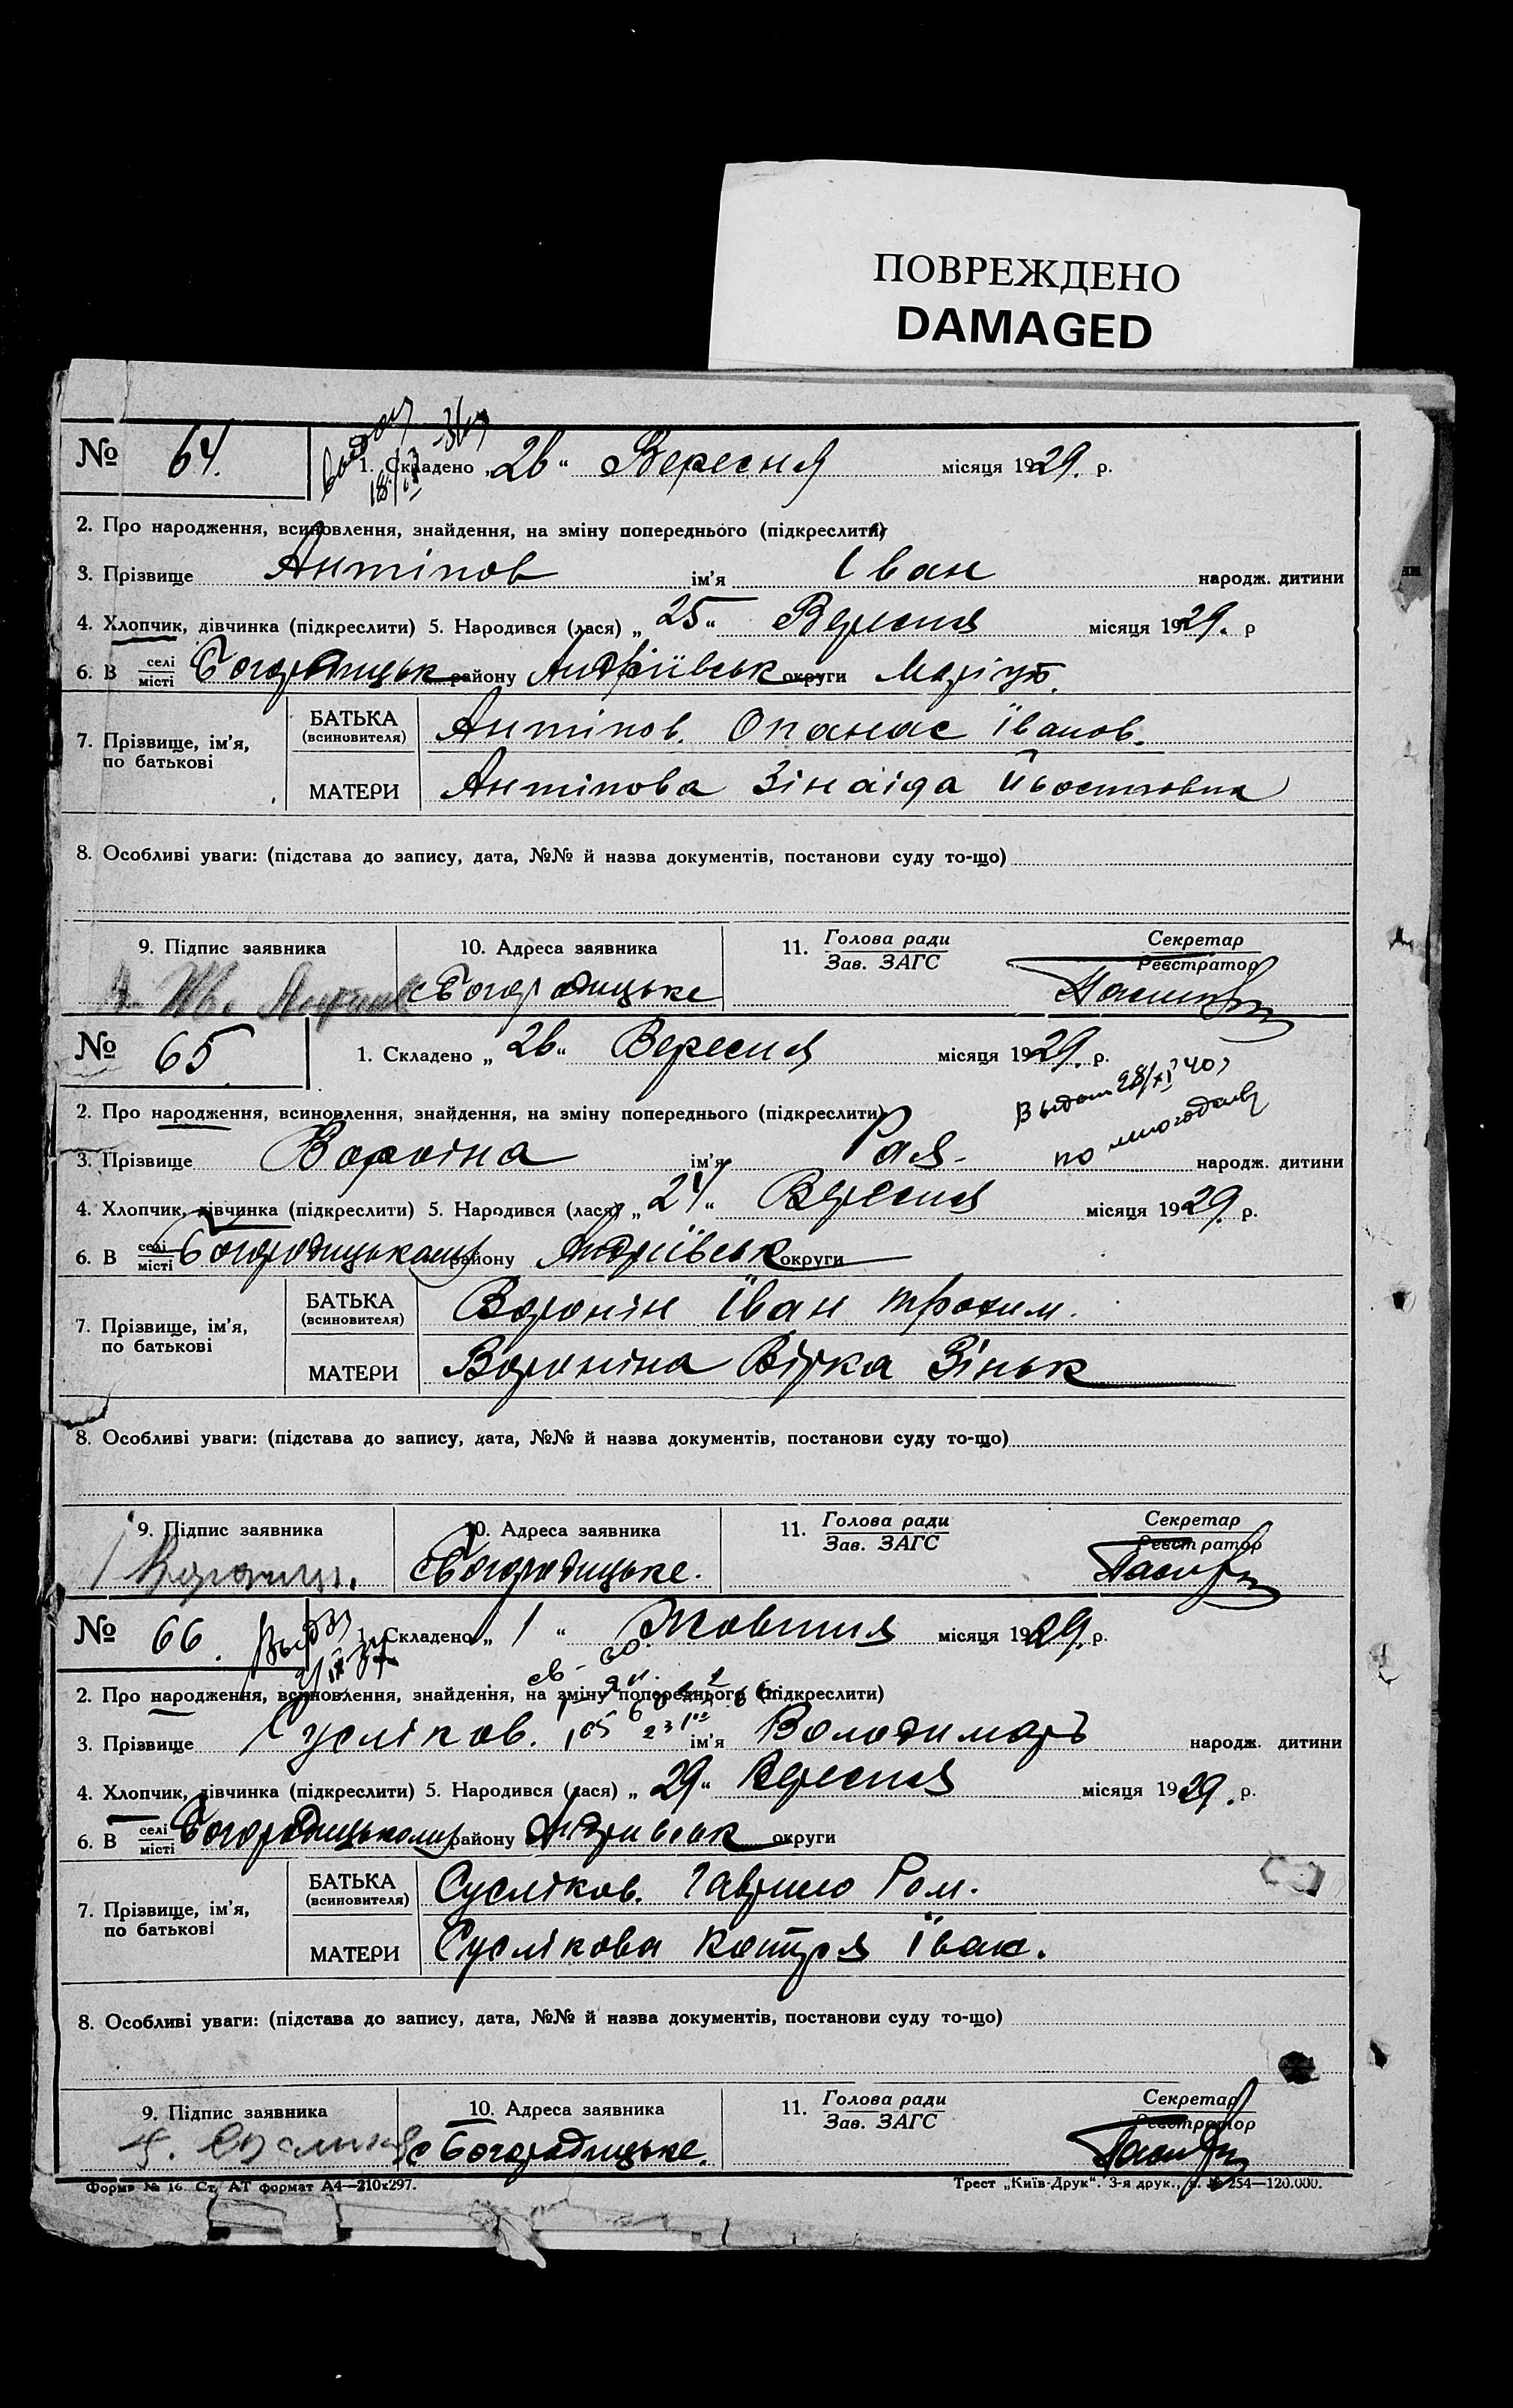 ПОВРЕЖДЕНО
DAMAGED
№ 64. 1. Складено „26“ Вересня місяця 1929. р.
2. Про народження, всиновлення, знайдення, на зміну попереднього (підкреслити)
3. Прізвище Антіпов ім'я Іван народж. дитини
4. Хлопчик, дівчинка (підкреслити) 5. Народився (лася) „25“ Вересня місяця 1929. р
6. В селі місті Богородицьк району Андріївськ округи Маріуп.
7. Прізвище, ім'я, по батькові БАТЬКА (всиновителя) Антіпов. Опанас Іванов.
МАТЕРИ Антіпова Зінаіда
8. Особливі уваги: (підстава до запису, дата, №№ й назва документів, постанови суду то-що)
9. Підпис заявника 10. Адреса заявника 11. Голова ради Зав. ЗАГС Секретар Реєстратор
с Богородицьке
№ 65. 1. Складено „26“ Вересня місяця 1929. р.
Выдан 28/XI 40
по многодетн
2. Про народження, всиновлення, знайдення, на зміну попереднього (підкреслити)
3. Прізвище ім'я Рая. народж. дитини
4. Хлопчик, дівчинка (підкреслити) 5. Народився (лася) „24“ Вересня місяця 1929. р.
6. В селі місті Богородицькому району Андріївськ округи
7. Прізвище, ім'я, по батькові БАТЬКА (всиновителя) Воронін Іван Трохим.
МАТЕРИ Вороніна Вірка Зіньк
8. Особливі уваги: (підстава до запису, дата, №№ й назва документів, постанови суду то-що)
9. Підпис заявника 10. Адреса заявника 11. Голова ради Зав. ЗАГС Секретар Реєстратор
с Богородицьке.
№ 66. 1. Складено „1“ Жовтня місяця 1929. р.
2. Про народження, всиновлення, знайдення, на зміну попереднього (підкреслити)
3. Прізвище Сусліков. ім'я Володимарь народж. дитини
4. Хлопчик, дівчинка (підкреслити) 5. Народився (лася) „29“ Вересня місяця 1929. р.
6. В селі місті Богородицькому району округи
7. Прізвище, ім'я, по батькові БАТЬКА (всиновителя) Сусліков. Гаврило Ром.
МАТЕРИ Суслікова Катря Іван.
8. Особливі уваги: (підстава до запису, дата, №№ й назва документів, постанови суду то-що)
9. Підпис заявника 10. Адреса заявника 11. Голова ради Зав. ЗАГС Секретар Реєстратор
с Богородицьке.
Форма № 16. Ст. АТ формат А4—210х297. Трест „Київ-Друк“. 3-я друк., з. № 254—120.000.